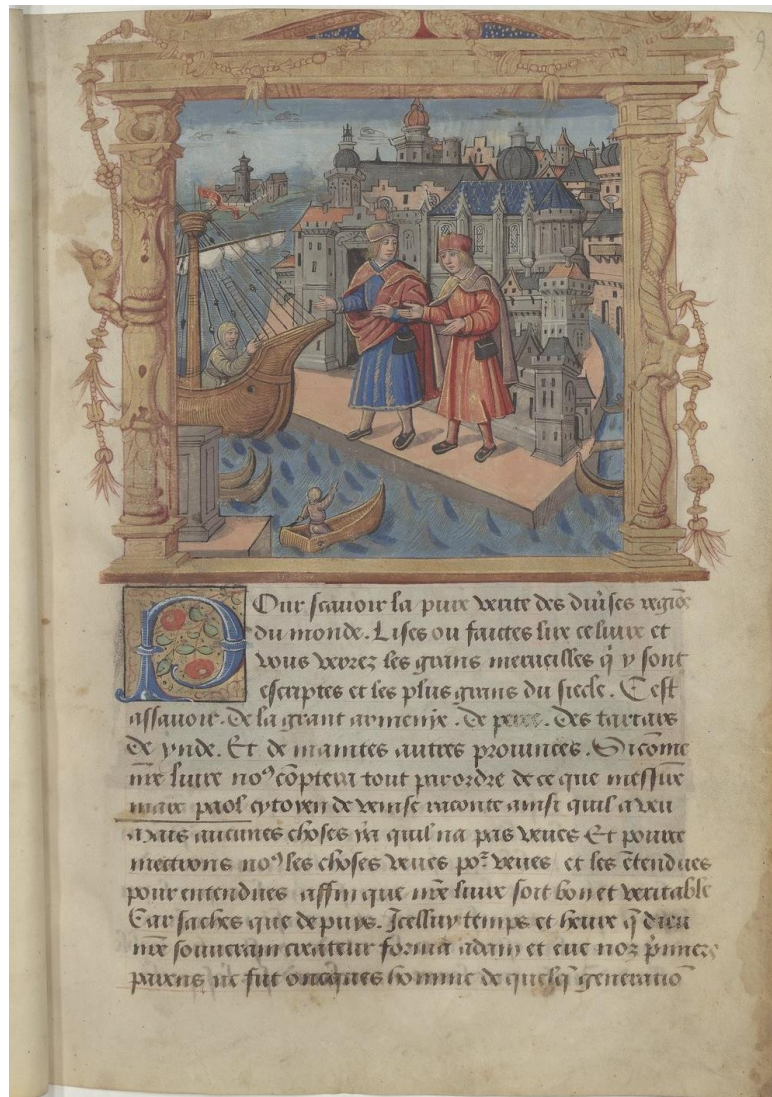 9
Pour scauoir la pure verite des diuses regiōs
du monde. Lises ou faictes lire ce liure et
vous verrez les grans merueilles q̄ y sont
escriptes et les plus grans du siecle. C est
assauoir. de la grant armenye. de perse. des tartars
de ynde. Et de maintes autres prouinces. Sicōme
nr̄e liure noꝰ cōptera tout par ordre de ce que messire
marc paol cytoyen de venise raconte ainsi quil a veu
Mais aucunes choses ya quil na pas veues Et pource
mectrons noꝰ les choses veues por veues et les ētendues
pour entendues affin que nr̄e liure soit bon et veritable
Car saches que depuys. Jcelluy temps et heure q̄ dieu
nr̄e souuerain createur forma adam et eue noz p̄miers
parens ne fut oncques homme de quelq̄ generatiō